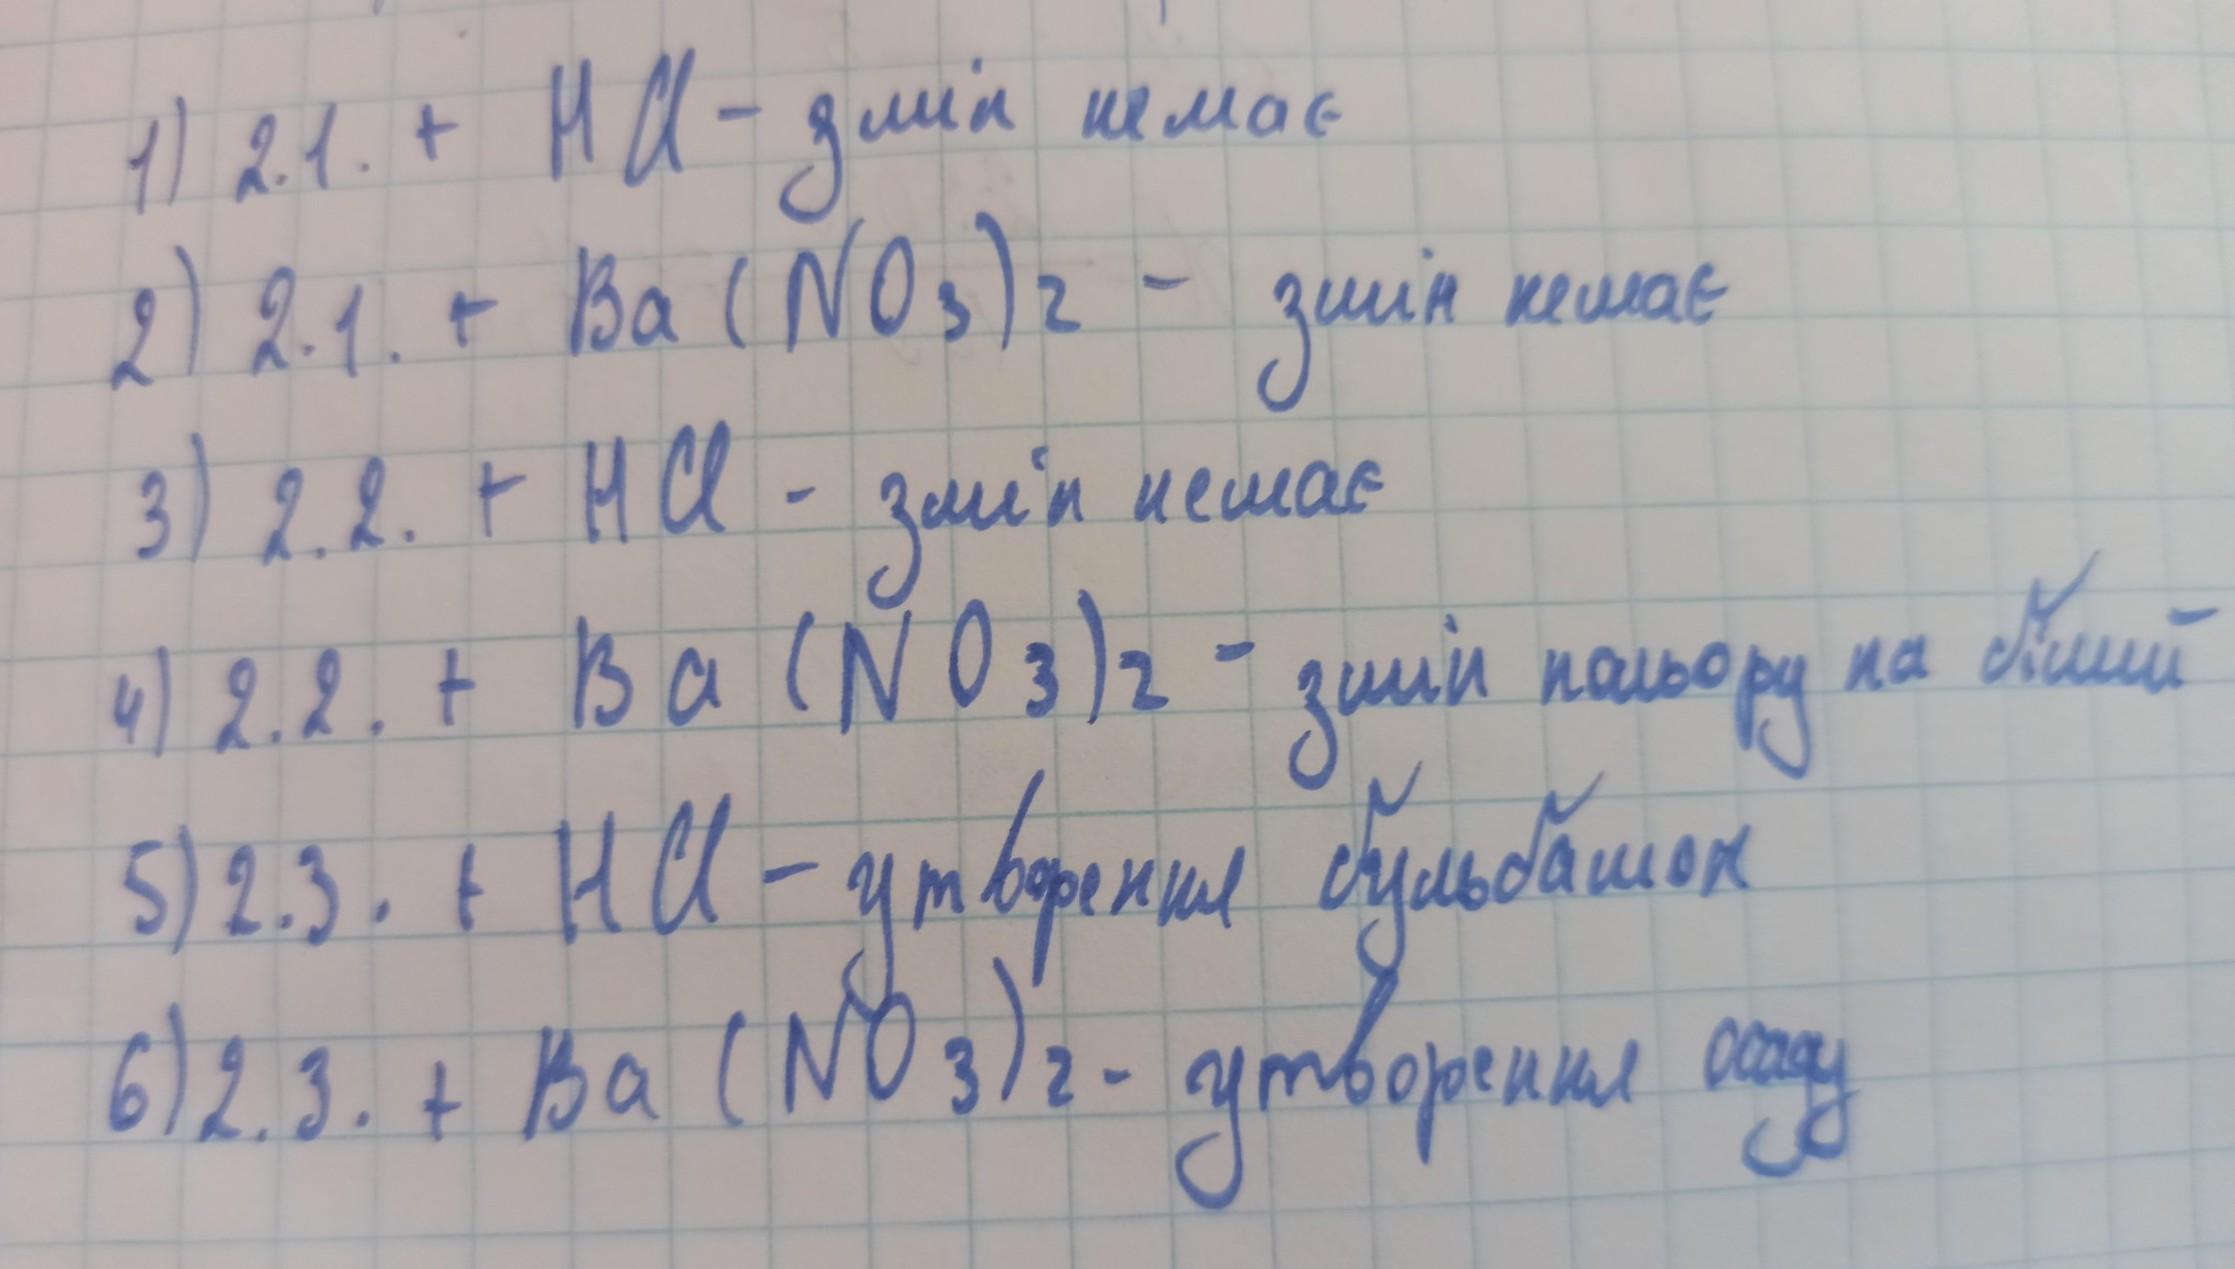 1) 2.1. + HCl - змін немає
2) 2.1. + Ba(NO3)2 - змін немає
3) 2.2. + HCl - змін немає
4) 2.2. + Ba(NO3)2 - змін кольору на білий
5) 2.3. + HCl - утворення бульбашок
6) 2.3. + Ba(NO3)2 - утворення осаду